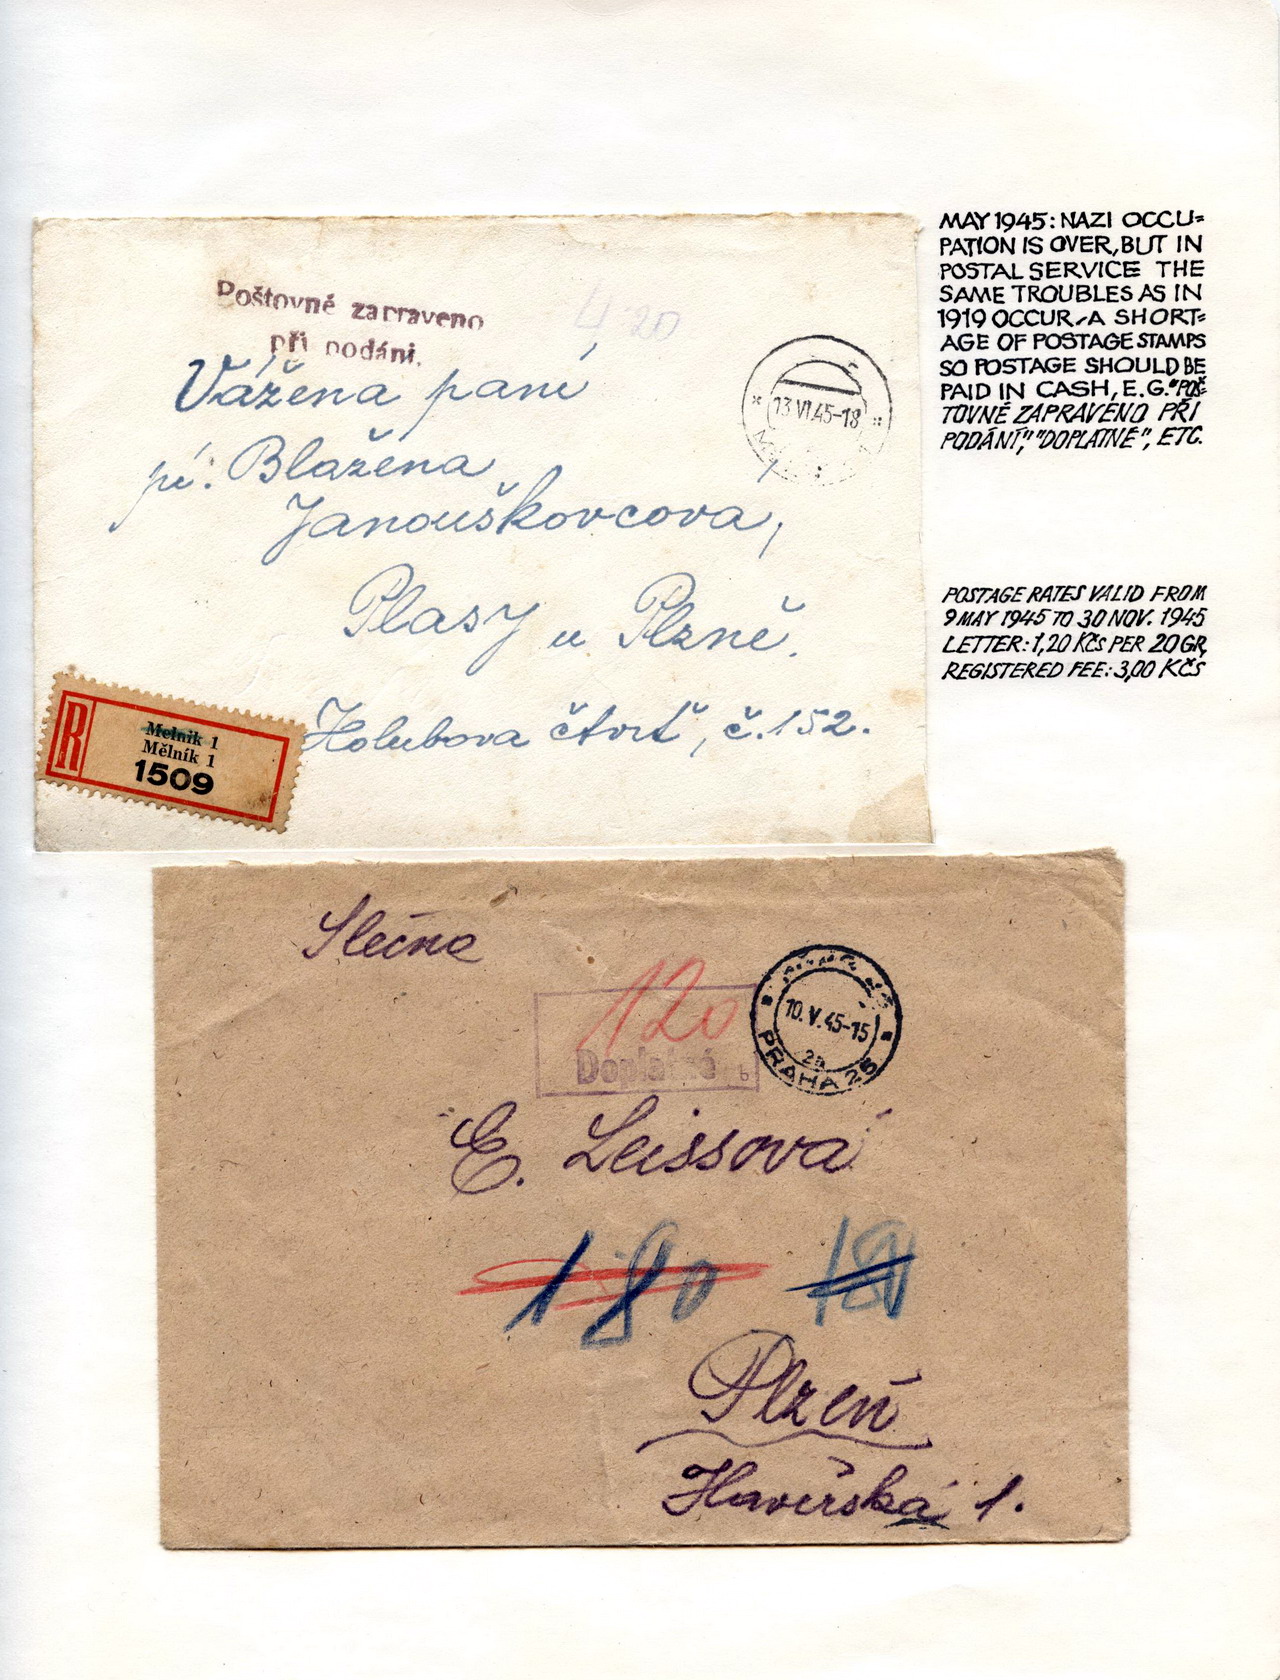 MAY 1945: NAZI OCCU=
PATION IS OVER, BUT IN
POSTAL SERVICE THE
SAME TROUBLES AS IN
1919 OCCUR - A SHORT=
AGE OF POSTAGE STAMPS
SO POSTAGE SHOULD BE
PAID IN CASH, E.G. "POŠ=
TOVNÉ ZAPRAVENO PŘI
PODÁNÍ," "DOPLATNÉ", ETC.
POSTAGE RATES VALID FROM
9 MAY 1945 TO 30 NOV. 1945
LETTER: 1,20 KČS PER 20 GR,
REGISTERED FEE: 3,00 KČS
Poštovné zapraveno
při podání.
4 20
13 VI.45-18
Vážená paní
pí: Blažena
Janouškovcova,
Plasy u Plzně.
Holubova čtvrť, č. 152.
R
Melnik 1
Mělník 1
1509
Slečna
120
Doplatné
b
10. V. 45-15
2a
PRAHA 25
E. Leissová
180
18
Plzeň
Havířská 1.